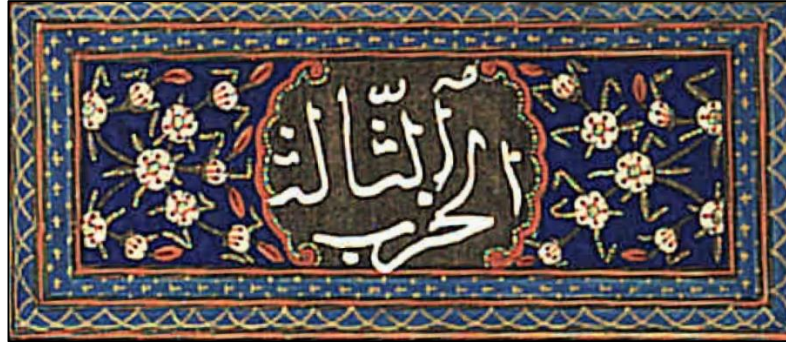 الحزب الثّالث